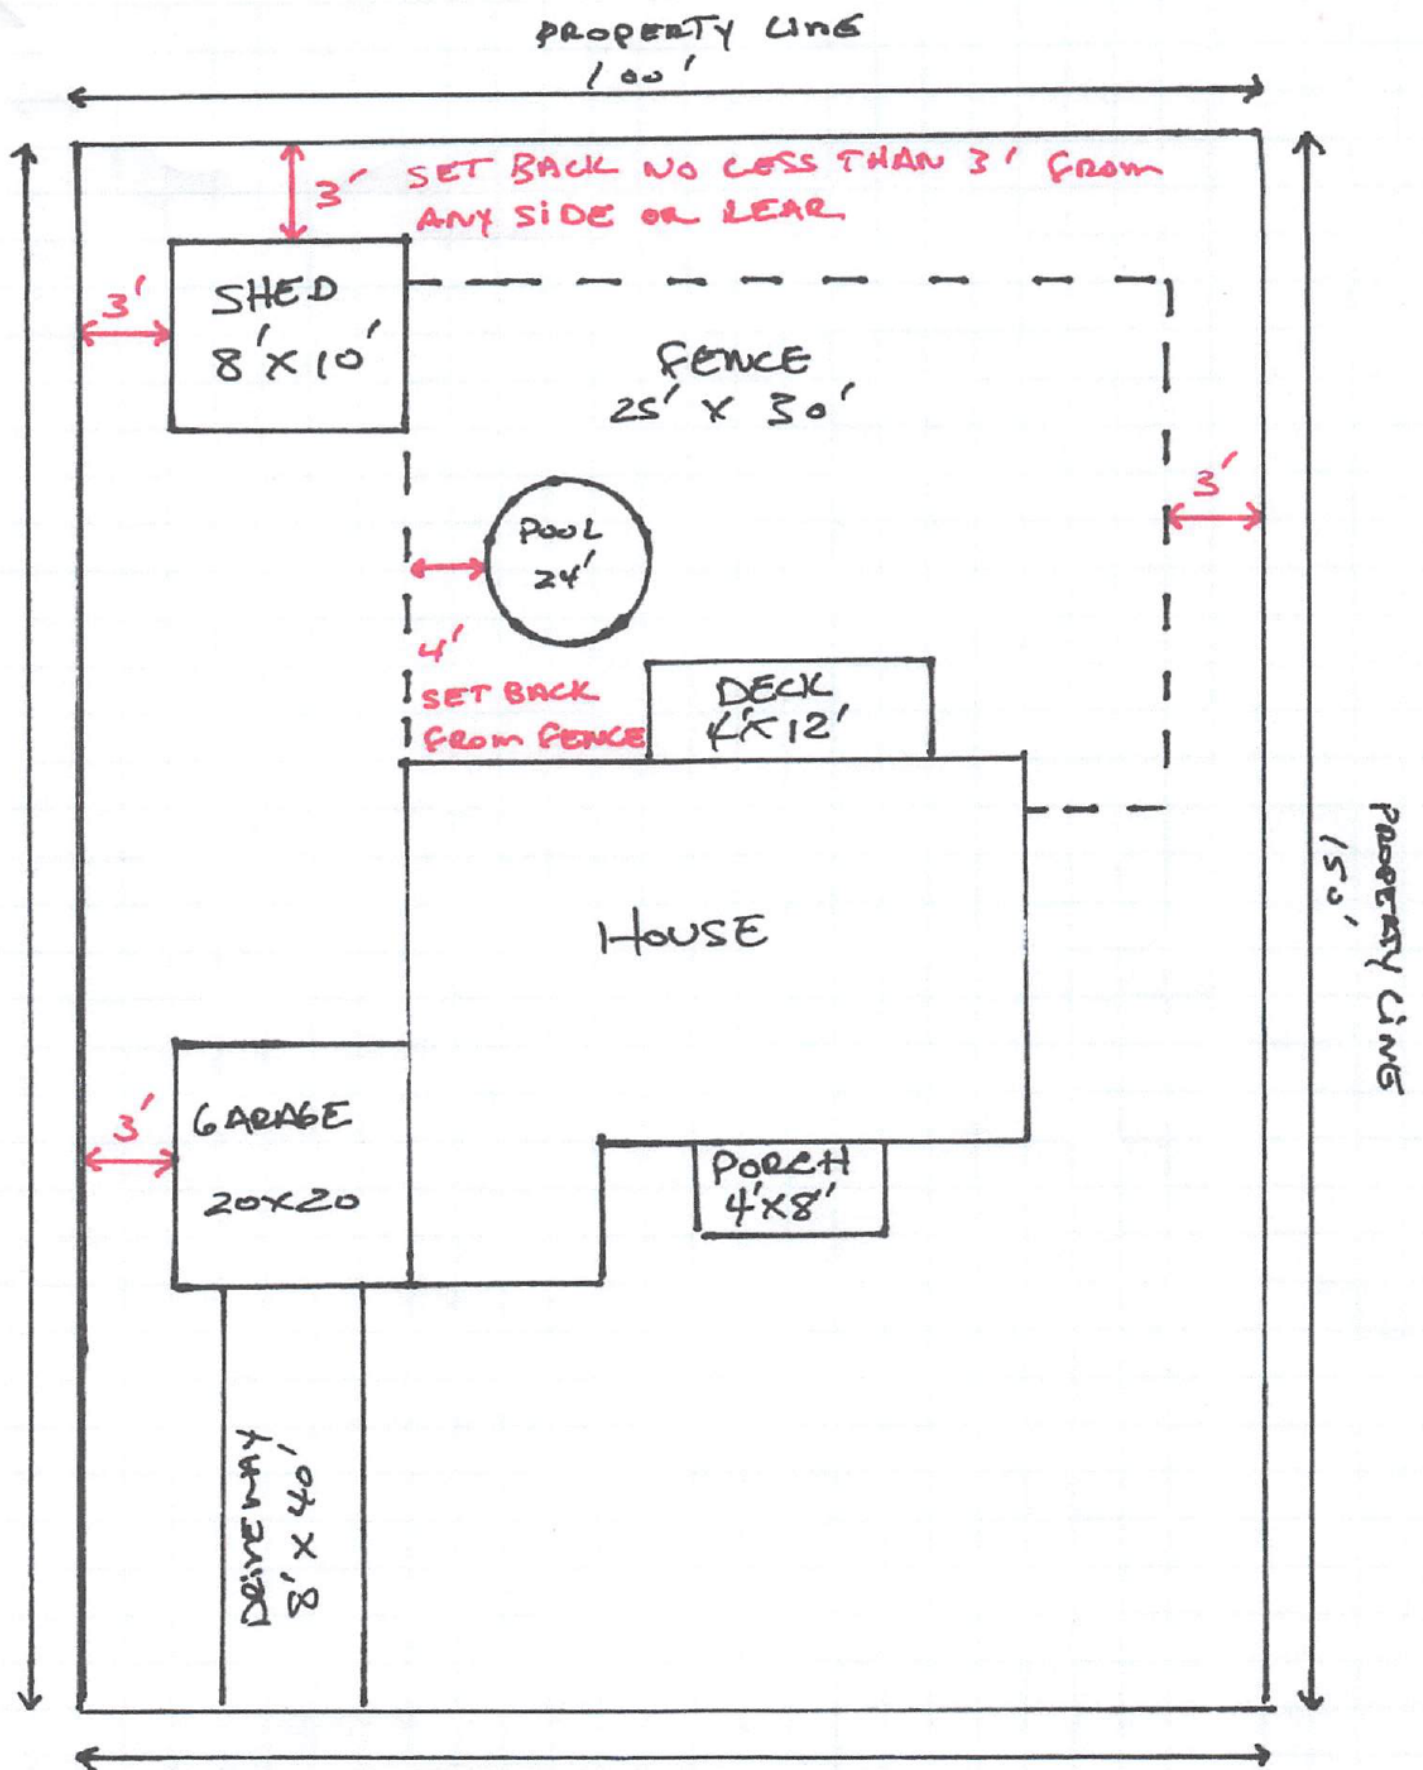 PROPERTY LINE
100'
3'
SET BACK NO LESS THAN 3' FROM
ANY SIDE OR REAR
SHED
8' X 10'
3'
FENCE
25' X 30'
3'
POOL
24'
4'
SET BACK
FROM FENCE
DECK
4'X12'
PROPERTY LINE
150'
HOUSE
GARAGE
20X20
3'
PORCH
4'X8"
DRIVEWAY
8' X 40'